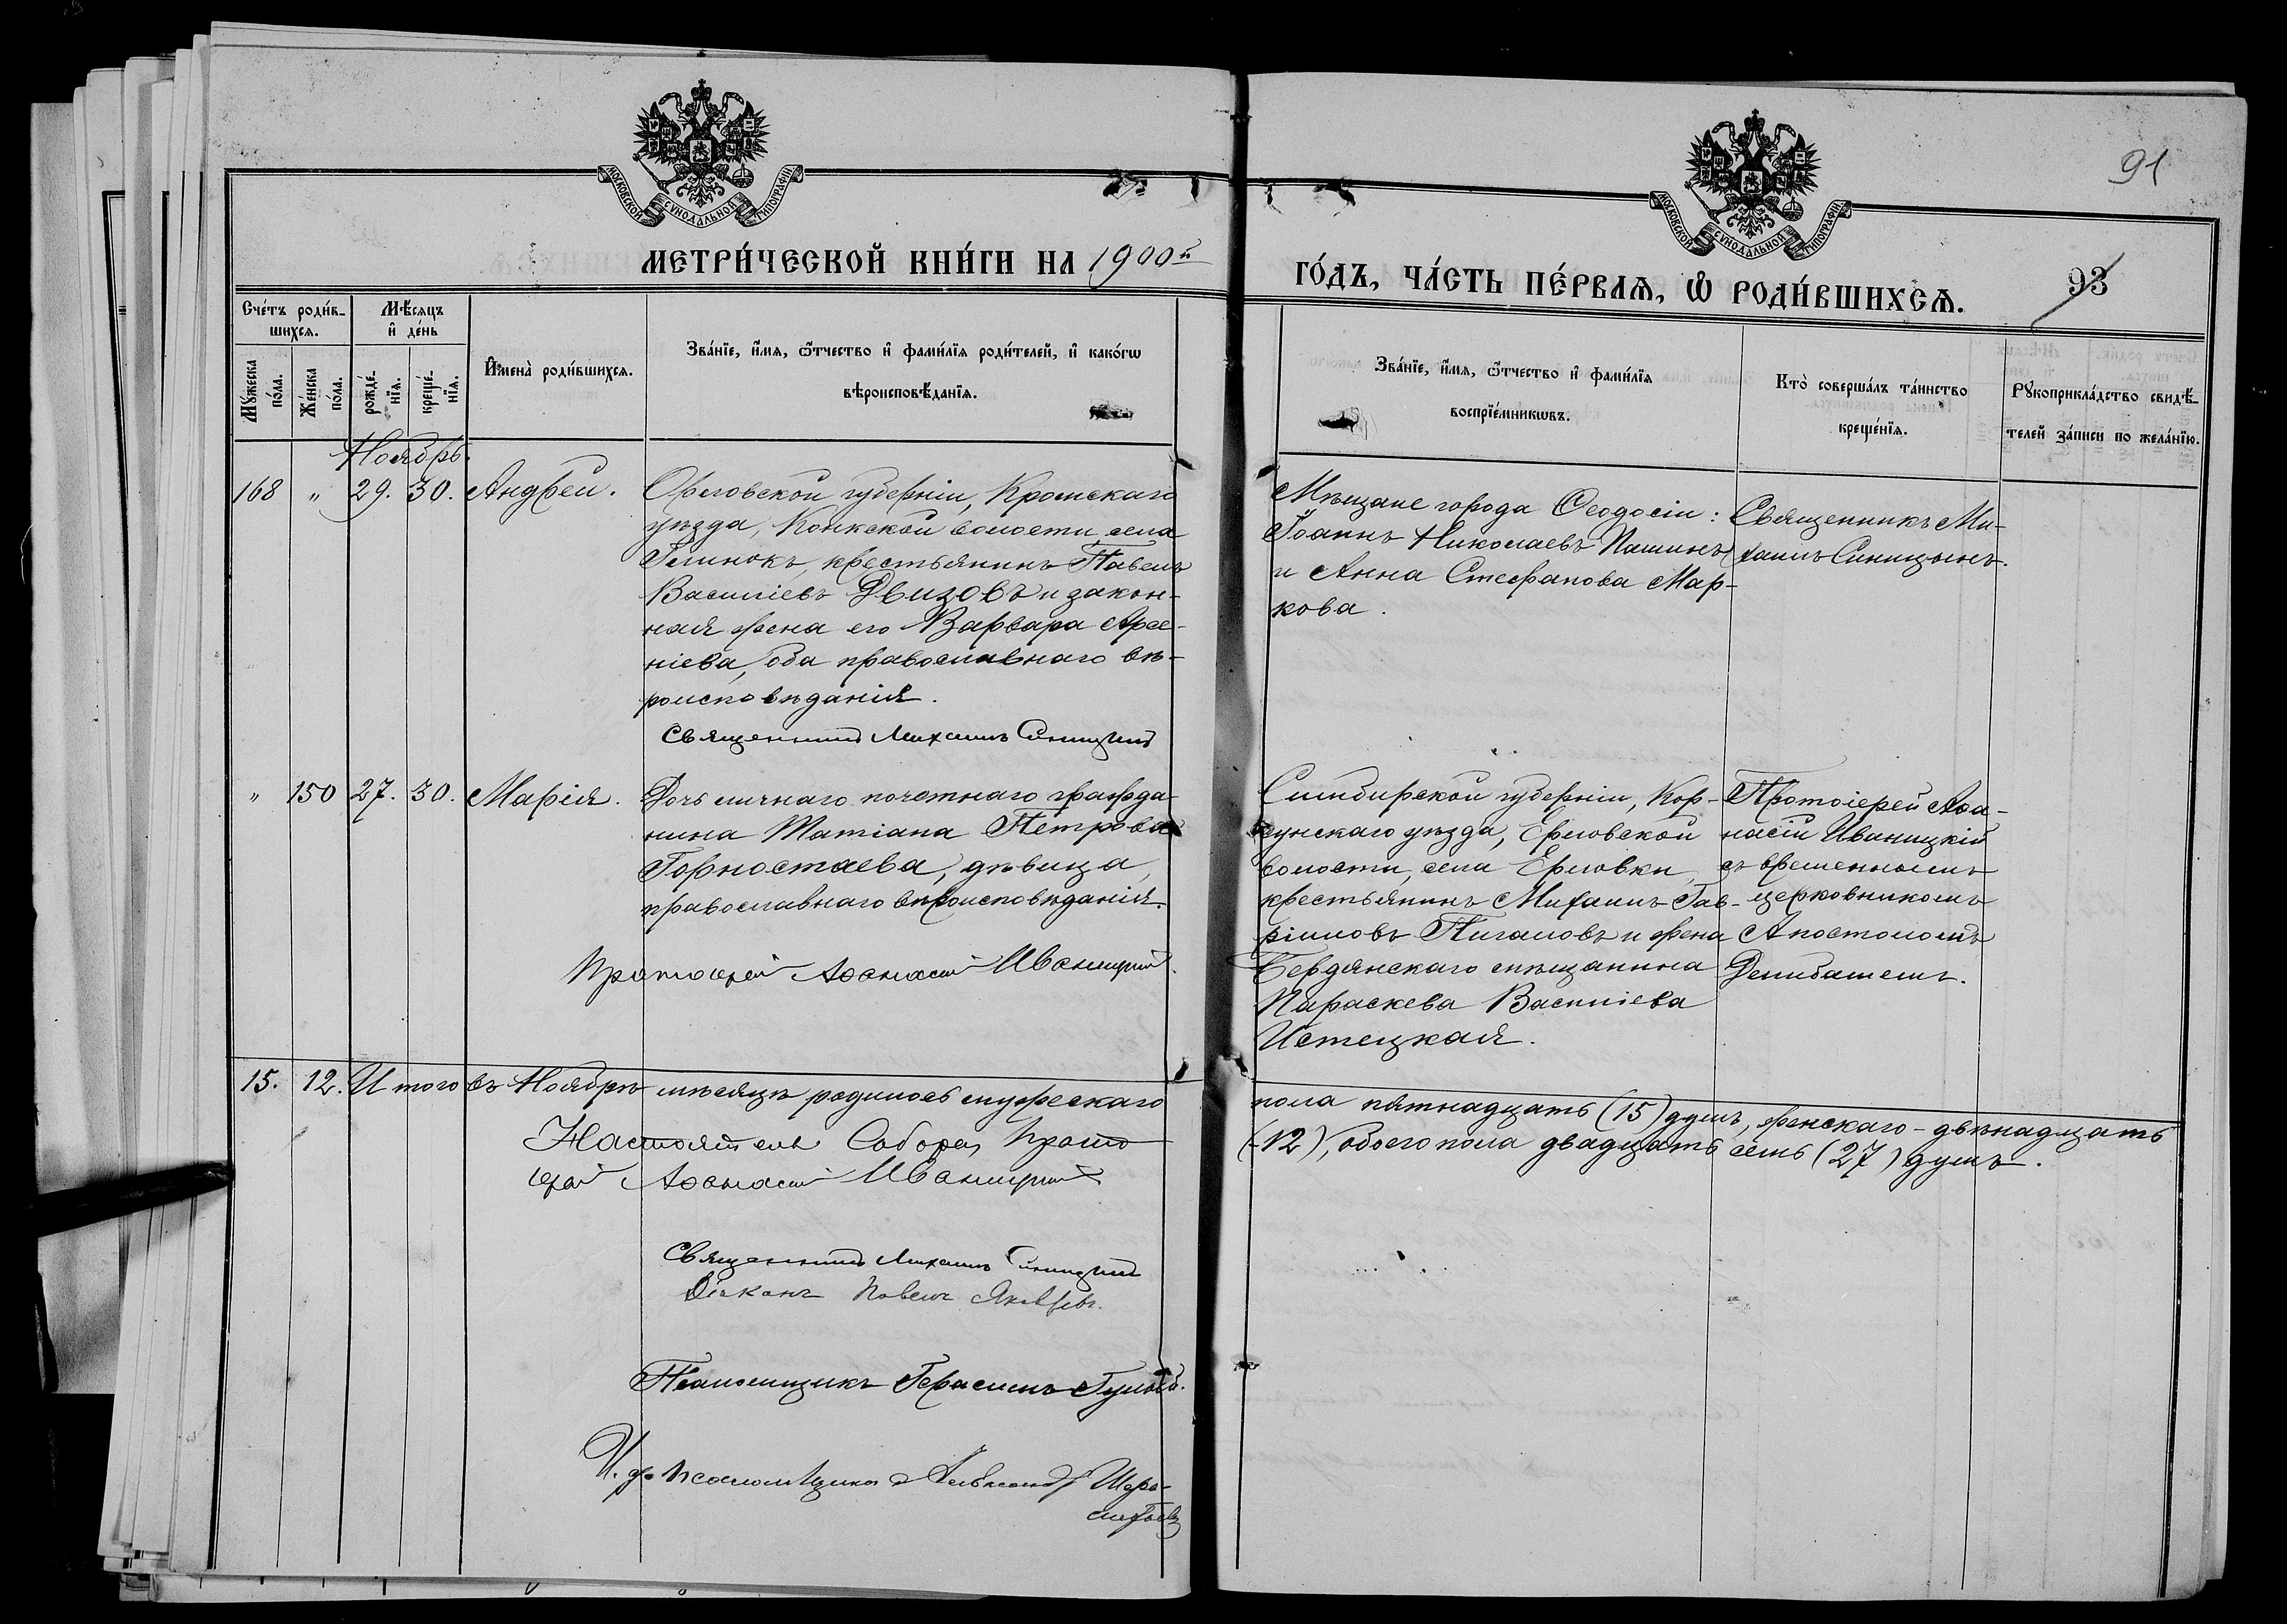 91
МОСКОВСКОЙ СѴНОДАЛЬНОЙ ТИПОГРАФІИ
МОСКОВСКОЙ СѴНОДАЛЬНОЙ ТИПОГРАФІИ
МЕТРИ́ЧЕСКОЙ КНИ́ГИ НА 1900й
ГО́ДЪ, ЧА́СТЬ ПЕ́РВАѦ, Ѿ РОДИ́ВШИХСѦ.
93
Сче́тъ роди́в-
шихся.
Мѣ́сяцъ
и҆ де́нь
Мꙋ́жеска
по́ла.
Же́нска
по́ла.
рожде́-
нїѧ.
креще́-
нїѧ.
И҆мена̀ роди́вшихся.
Зва́нїе, и҆́мѧ, ѻ҆́тчество и҆ фами́лїѧ роди́телей, и҆ како́гѡ
вѣроисповѣ́данїѧ.
Зва́нїе, и҆́мѧ, ѻ҆́тчество и҆ фами́лїѧ
воспрїе́мникѡвъ.
Кто̀ соверша́лъ та́инство
креще́нїѧ.
Рꙋкоприкла́дство свидѣ́-
телей за́писи по жела́нїю.
Ноябрь.
168 " 29. 30. Андрей.
Орловской губерніи, Кромскаго
уѣзда, Конкской волости села
Глинокъ, крестьянинъ Павелъ
Василіевъ Двизовъ и закон-
ная жена его Варвара Арсе-
ніева, оба православнаго вѣ-
роисповѣданія.
Священникъ Михаилъ Синицынъ
Мѣщане города Ѳеодосіи:
Іоаннъ Николаевъ Пашинъ
и Анна Стефанова Мар-
кова.
Священникъ Ми-
хаилъ Синицынъ.
" 150 27. 30. Марія.
Дочь личнаго почетнаго гражда-
нина Татіана Петрова
Горностаева, дѣвица,
православнаго вѣроисповѣданія.
Протоіерей Аѳанасій Иваницкій.
Симбирской губерніи, Кор-
сунскаго уѣзда, Ермовской
волости, села Ермовки,
крестьянинъ Михаилъ Гав-
ріиловъ Пигаловъ и жена
Бердянскаго мѣщанина
Параскева Василіева
Истецкая.
Протоіерей Аѳа-
насій Иваницкій
съ временнымъ
церковникомъ
Апостоломъ
Демибашемъ.
15. 12. Итого въ Ноябрѣ мѣсяцѣ родилось мужескаго
пола пятнадцать (15) душъ, женскаго - двѣнадцать
(12), обоего пола двадцать семь (27) душъ.
Настоятель Собора, Прото
іерей Аѳанасій Иваницкій
Священникъ Михаилъ Синицынъ
Діаконъ Павелъ
Псаломщикъ Герасимъ
И. д. псаломщика Александръ